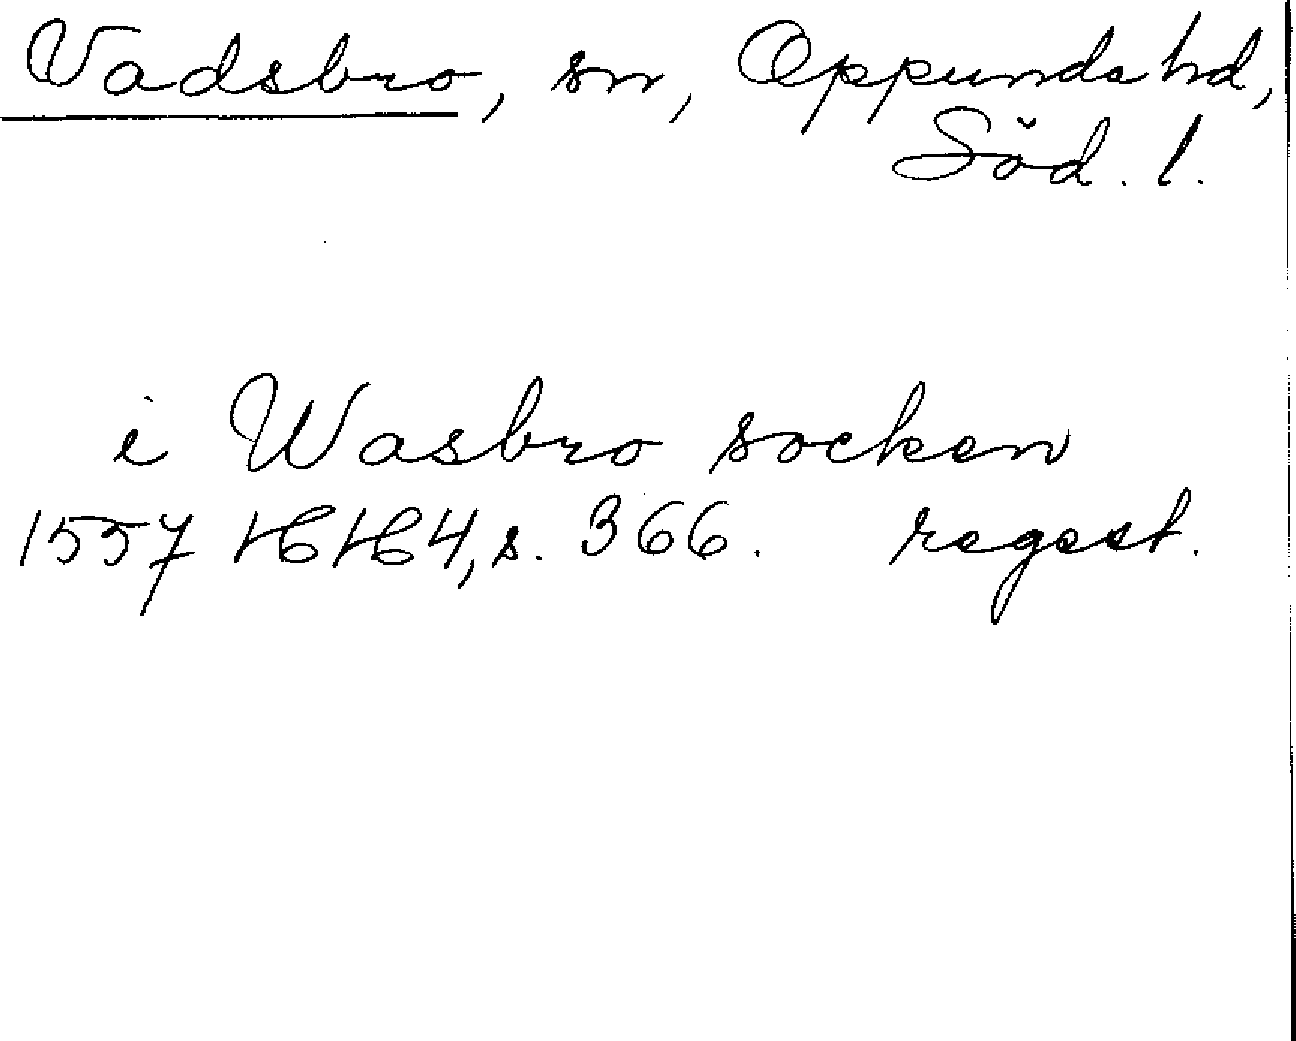 Vadsbro, sn, Oppunda hd,
Söd. l.
i Wasbro socken
1557 HH 4, s. 366. regest.